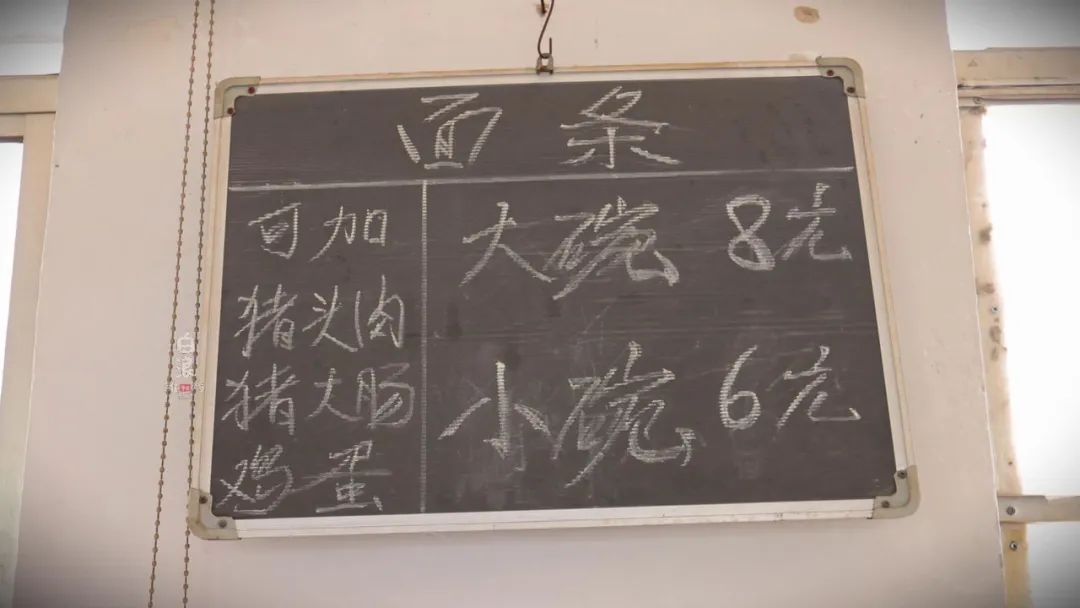 面条
可加
猪头肉
猪大肠
鸡蛋
大碗 8元
小碗 6元